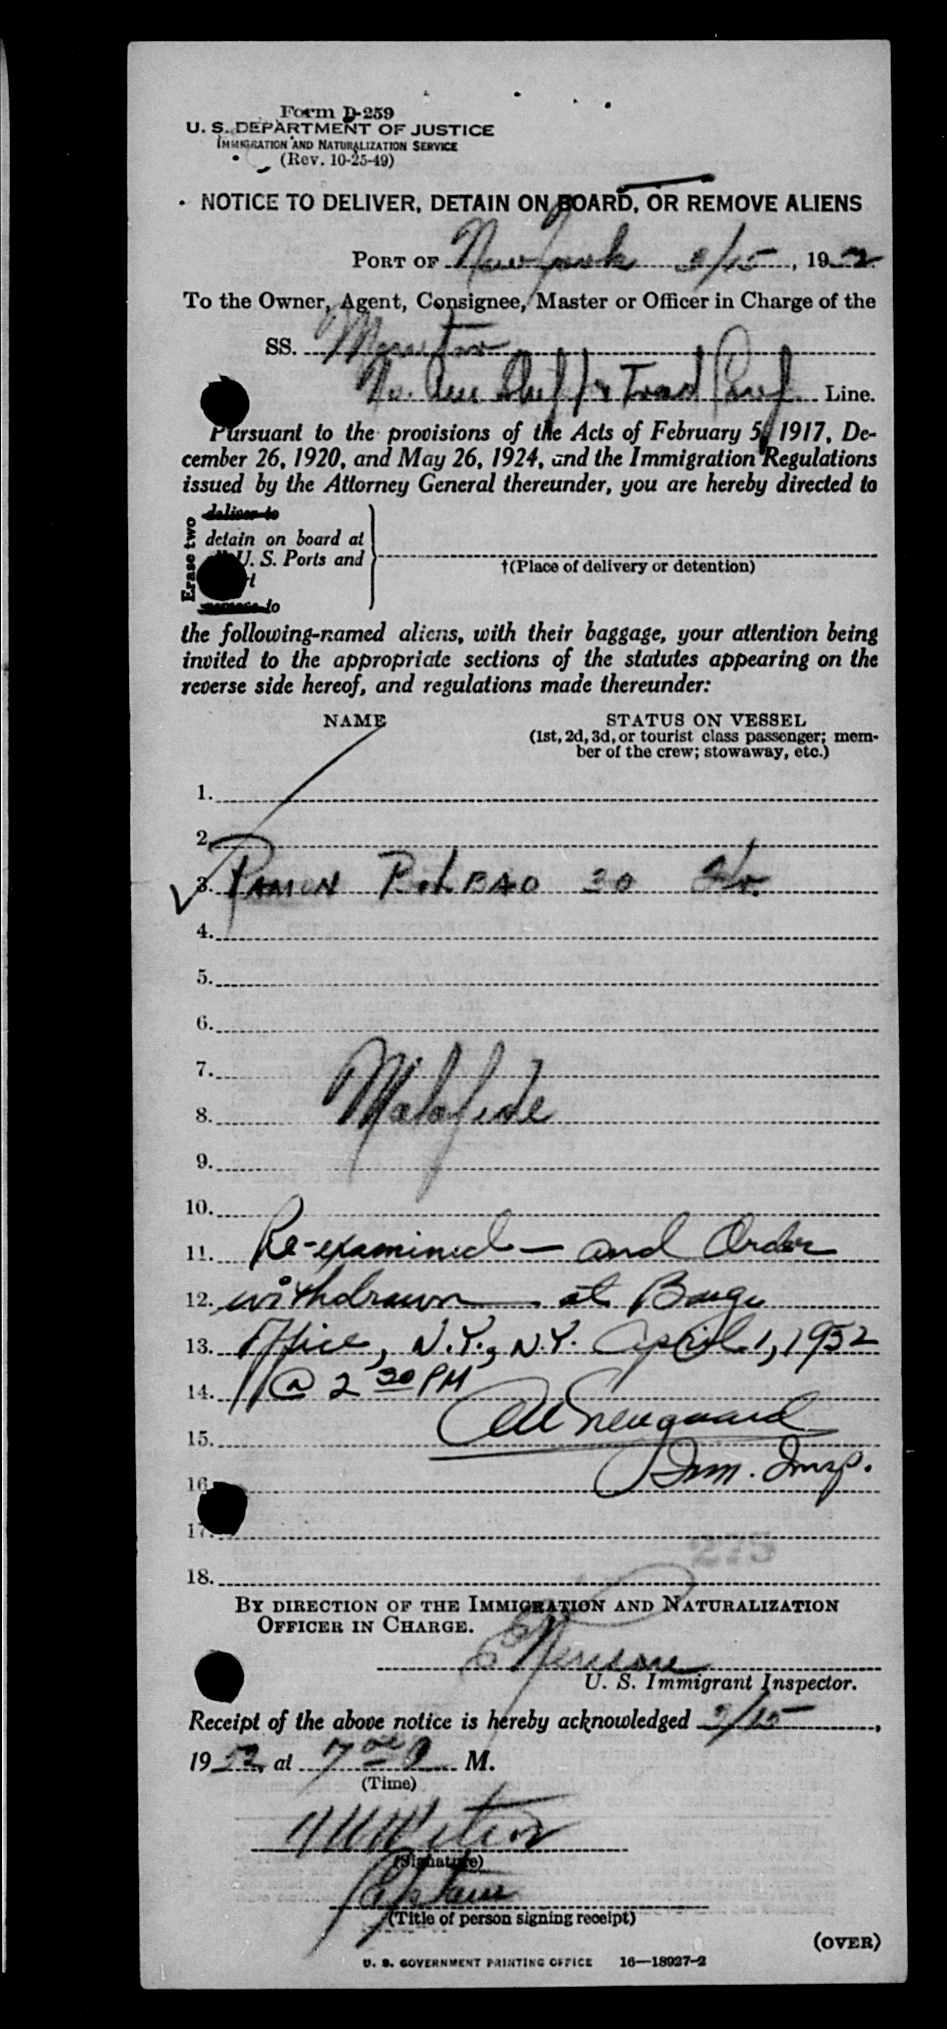 Form D-259
U. S. DEPARTMENT OF JUSTICE
IMMIGRATION AND NATURALIZATION SERVICE
(Rev. 10-25-49)
NOTICE TO DELIVER, DETAIN ON BOARD, OR REMOVE ALIENS
PORT OF New York 2/15, 1952
To the Owner, Agent, Consignee, Master or Officer in Charge of the
SS.
No. Am Ship & Trad Line.
Pursuant to the provisions of the Acts of February 5, 1917, De-
cember 26, 1920, and May 26, 1924, and the Immigration Regulations
issued by the Attorney General thereunder, you are hereby directed to
Erase two
deliver to
detain on board at
U. S. Ports and
remove to
†(Place of delivery or detention)
the following-named aliens, with their baggage, your attention being
invited to the appropriate sections of the statutes appearing on the
reverse side hereof, and regulations made thereunder:
NAME STATUS ON VESSEL
(1st, 2d, 3d, or tourist class passenger; mem-
ber of the crew; stowaway, etc.)
1.
2.
3. RAMON BILBAO 30
4.
5.
6.
7.
8. Malafide
9.
10.
11. Re-examined — and Order
12. withdrawn — at Barge
13. Office, N.Y., N.Y. April 1, 1952
14. @ 2 30 PM
15.
Imm. Insp.
16.
17.
275
18.
BY DIRECTION OF THE IMMIGRATION AND NATURALIZATION
OFFICER IN CHARGE.
U. S. Immigrant Inspector.
Receipt of the above notice is hereby acknowledged 2/15,
1952, at 7 00 P M.
(Time)
(Signature)
Captain
(Title of person signing receipt)
(OVER)
U. S. GOVERNMENT PRINTING OFFICE 16—18927-2